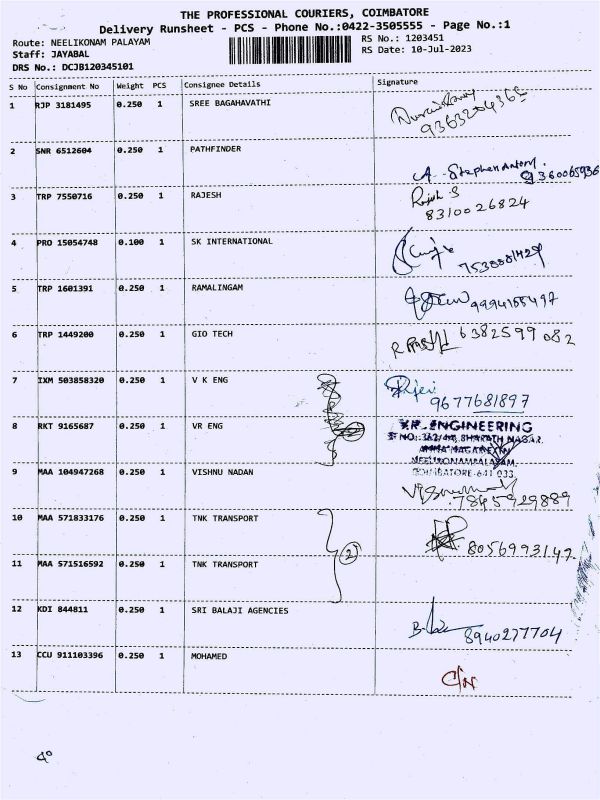 THE PROFESSIONAL COURIERS, COIMBATORE
Delivery Runsheet - PCS - Phone No.:0422-3505555 - Page No.:1
Route: NEELIKONAM PALAYAM RS No.: 1203451
Staff: JAYABAL RS Date: 10-Jul-2023
DRS No.: DCJB120345101
S No Consignment No Weight PCS Consignee Details Signature
1 RJP 3181495 0.250 1 SREE BAGAHAVATHI
9363204365
2 SNR 6512604 0.250 1 PATHFINDER
A. Stephen Antony.
9360065936
3 TRP 7550716 0.250 1 RAJESH Rajesh S
8310026824
4 PRO 15054748 0.100 1 SK INTERNATIONAL
5 TRP 1601391 0.250 1 RAMALINGAM
9994155497
6 TRP 1449200 0.250 1 GIO TECH 6382599082
7 IXM 503858320 0.250 1 V K ENG
9677681897
8 RKT 9165687 0.250 1 VR ENG VR ENGINEERING
BHARATH NAGAR
NEELIKONAMPALAYAM,
COIMBATORE-641 033
9 MAA 104947268 0.250 1 VISHNU NADAN
7845929889
10 MAA 571833176 0.250 1 TNK TRANSPORT
2 8056993147
11 MAA 571516592 0.250 1 TNK TRANSPORT
12 KDI 844811 0.250 1 SRI BALAJI AGENCIES
8940277704
13 CCU 911103396 0.250 1 MOHAMED
C/N